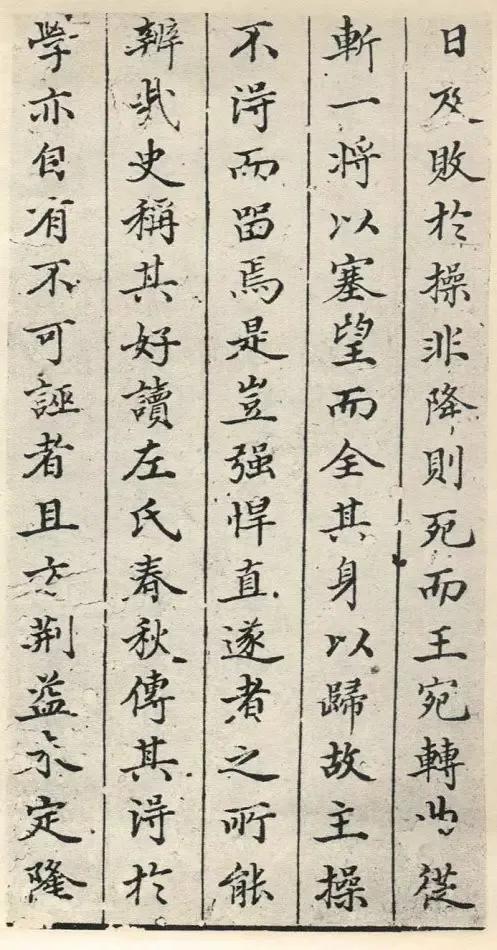 日及敗於操非降則死而王宛轉山從
斬一將以塞望而全其身以歸故主操
不得而留焉是豈强悍直遂者之所能
辨哉史稱其好讀左氏春秋傳其得於
學亦自有不可誣者且方荊益未定隆